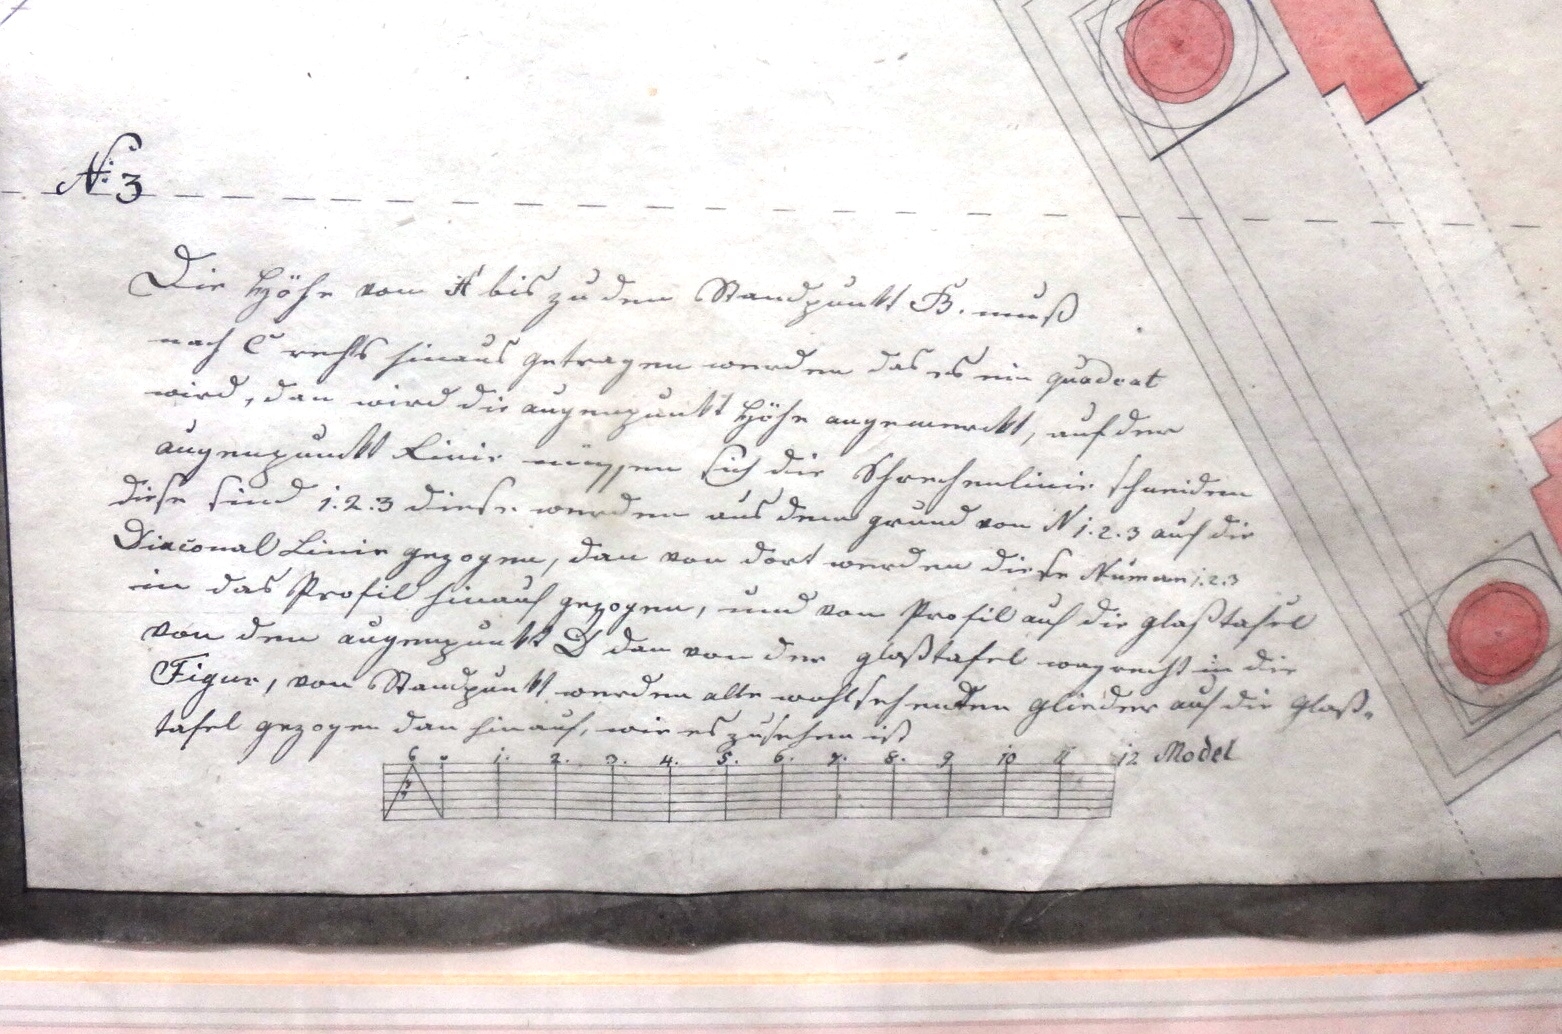 N: 3
Die Höhe vom A bis zu dem Standpunkt B. muß
nach C rechts hinaus getragen werden das es ein quadrat
wird, dan wird die augenpunkt Höhe angemerckt, auf der
augenpunckt Linie müssen sich die linie schneiden
diese sind 1.2.3 diese werden aus dem grund von N 1.2.3 auf die
Diaconal Linie gezogen, dan von dort werden diese 1.2.3
in das Profil hinauf gezogen, und von Profil auf die glaßtafel
von dem augenpunkt D dan von der glaßtafel wagrecht in die
Figur, von Standpunkt werden alle glieder auf die Glaß-
tafel gezogen dan hinauf, wie es zusehen ist
6 0 1. 2. 3. 4. 5. 6. 7. 8. 9 10 11 12 Model